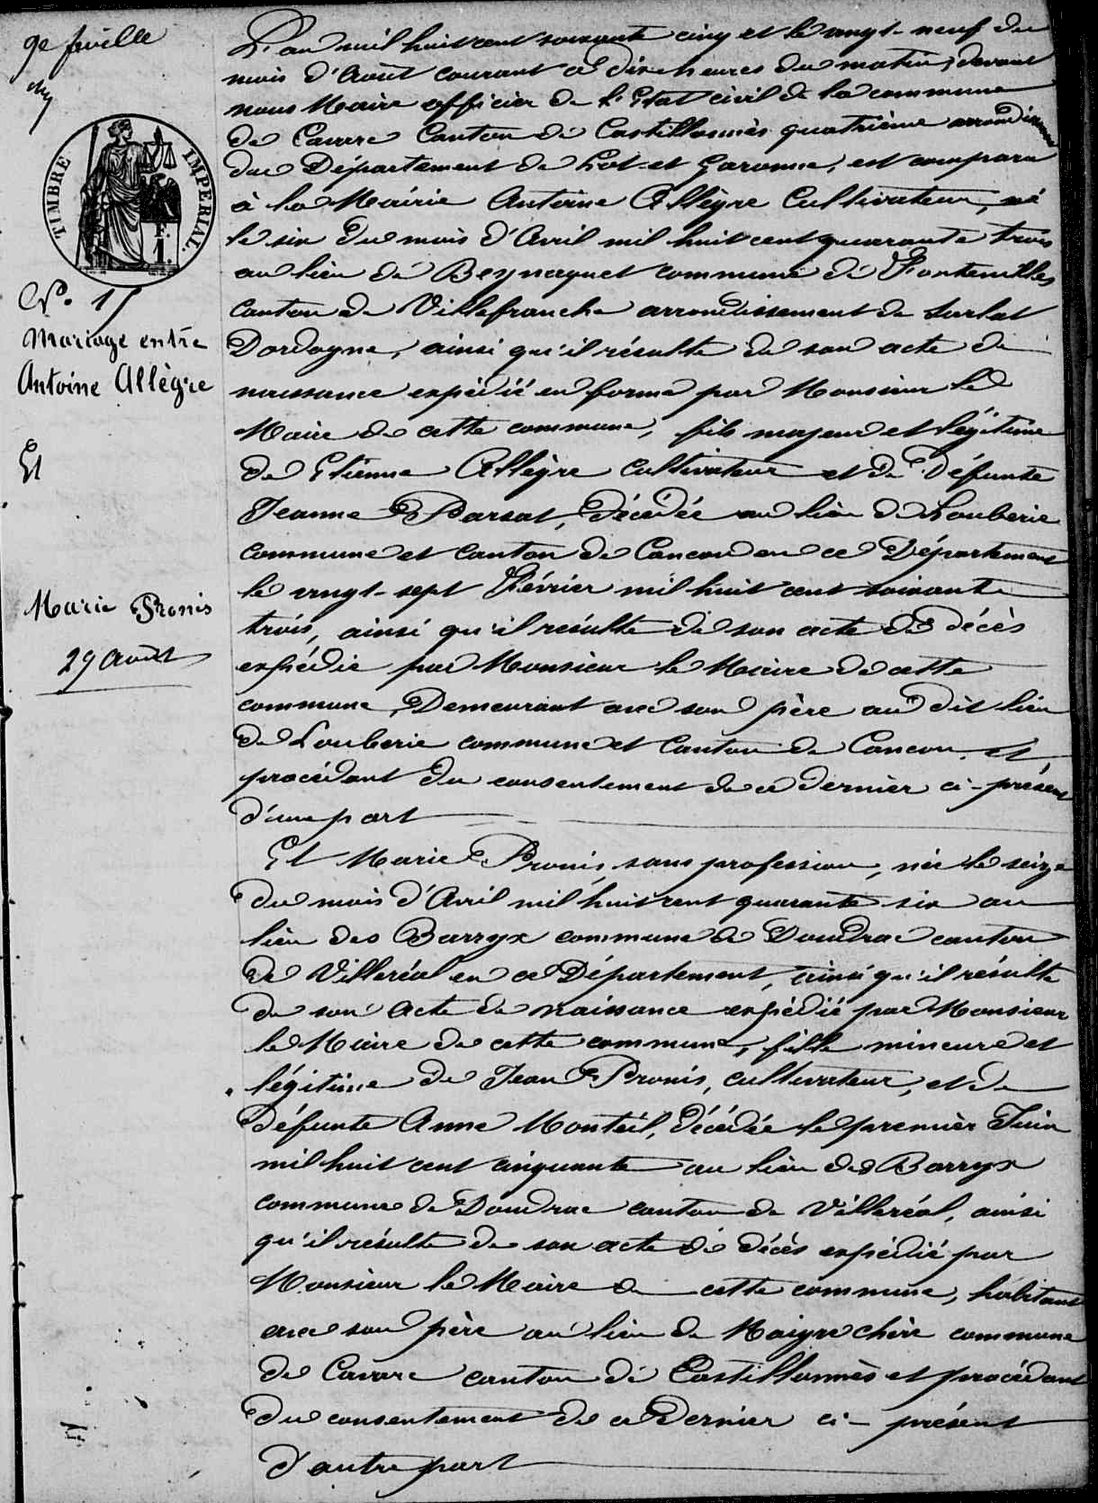 9e feuille
TIMBRE IMPERIAL.
F.
1.
No. 15
Mariage entre
Antoine Allègre
Et
Marie Pronis
29 août
L'an mil huit cent soixante cinq et le vingt-neuf du
mois d'Août courant à dix heures du matin, devant
nous Maire officier de l'Etat civil de la commune
de Cavarc Canton de Castillonnès quatrième arrondissement
du Département de Lot-et Garonne, est comparu
à la Mairie Antoine Allègre Cultivateur, né
le six du mois d'Avril mil huit cent quarante trois
au lieu de Beynaguet commune de Fontenilles
canton de Villefranche arrondissement de Sarlat
Dordogne, ainsi qu'il résulte de son acte de
naissance expédié en forme par Monsieur le
Maire de cette commune, fils majeur et légitime
de Etienne Allègre cultivateur et de défunte
Jeanne Parsat, décédée au lieu de Louberie
commune et canton de Cancon en ce Département
le vingt-sept Février mil huit cent soixante
trois, ainsi qu'il résulte de son acte de décès
expédié par Monsieur le Maire de cette
commune, Demeurant avec son père au dit lieu
de Louberie commune et Canton de Cancon et
procédant du consentement de ce dernier ci-présent
d'une part
Et Marie Pronis, sans profession, née le seize
du mois d'Avril mil huit cent quarante six au
lieu des Barryx commune de Doudrac canton
de Villeréal en ce Département, ainsi qu'il résulte
de son acte de naissance expédié par Monsieur
le Maire de cette commune, fille mineure et
légitime de Jean Pronis, cultivateur, et de
défunte Anne Monteil, décédée le premier Juin
mil huit cent cinquante au lieu des Barryx
commune de Doudrac canton de Villeréal, ainsi
qu'il résulte de son acte de décès expédié par
Monsieur le Maire de cette commune, habitant
avec son père au lieu de Maigre chère commune
de Cavarc canton de Castillonnès et procédant
du consentement de ce Dernier ci-présent
d'autre part